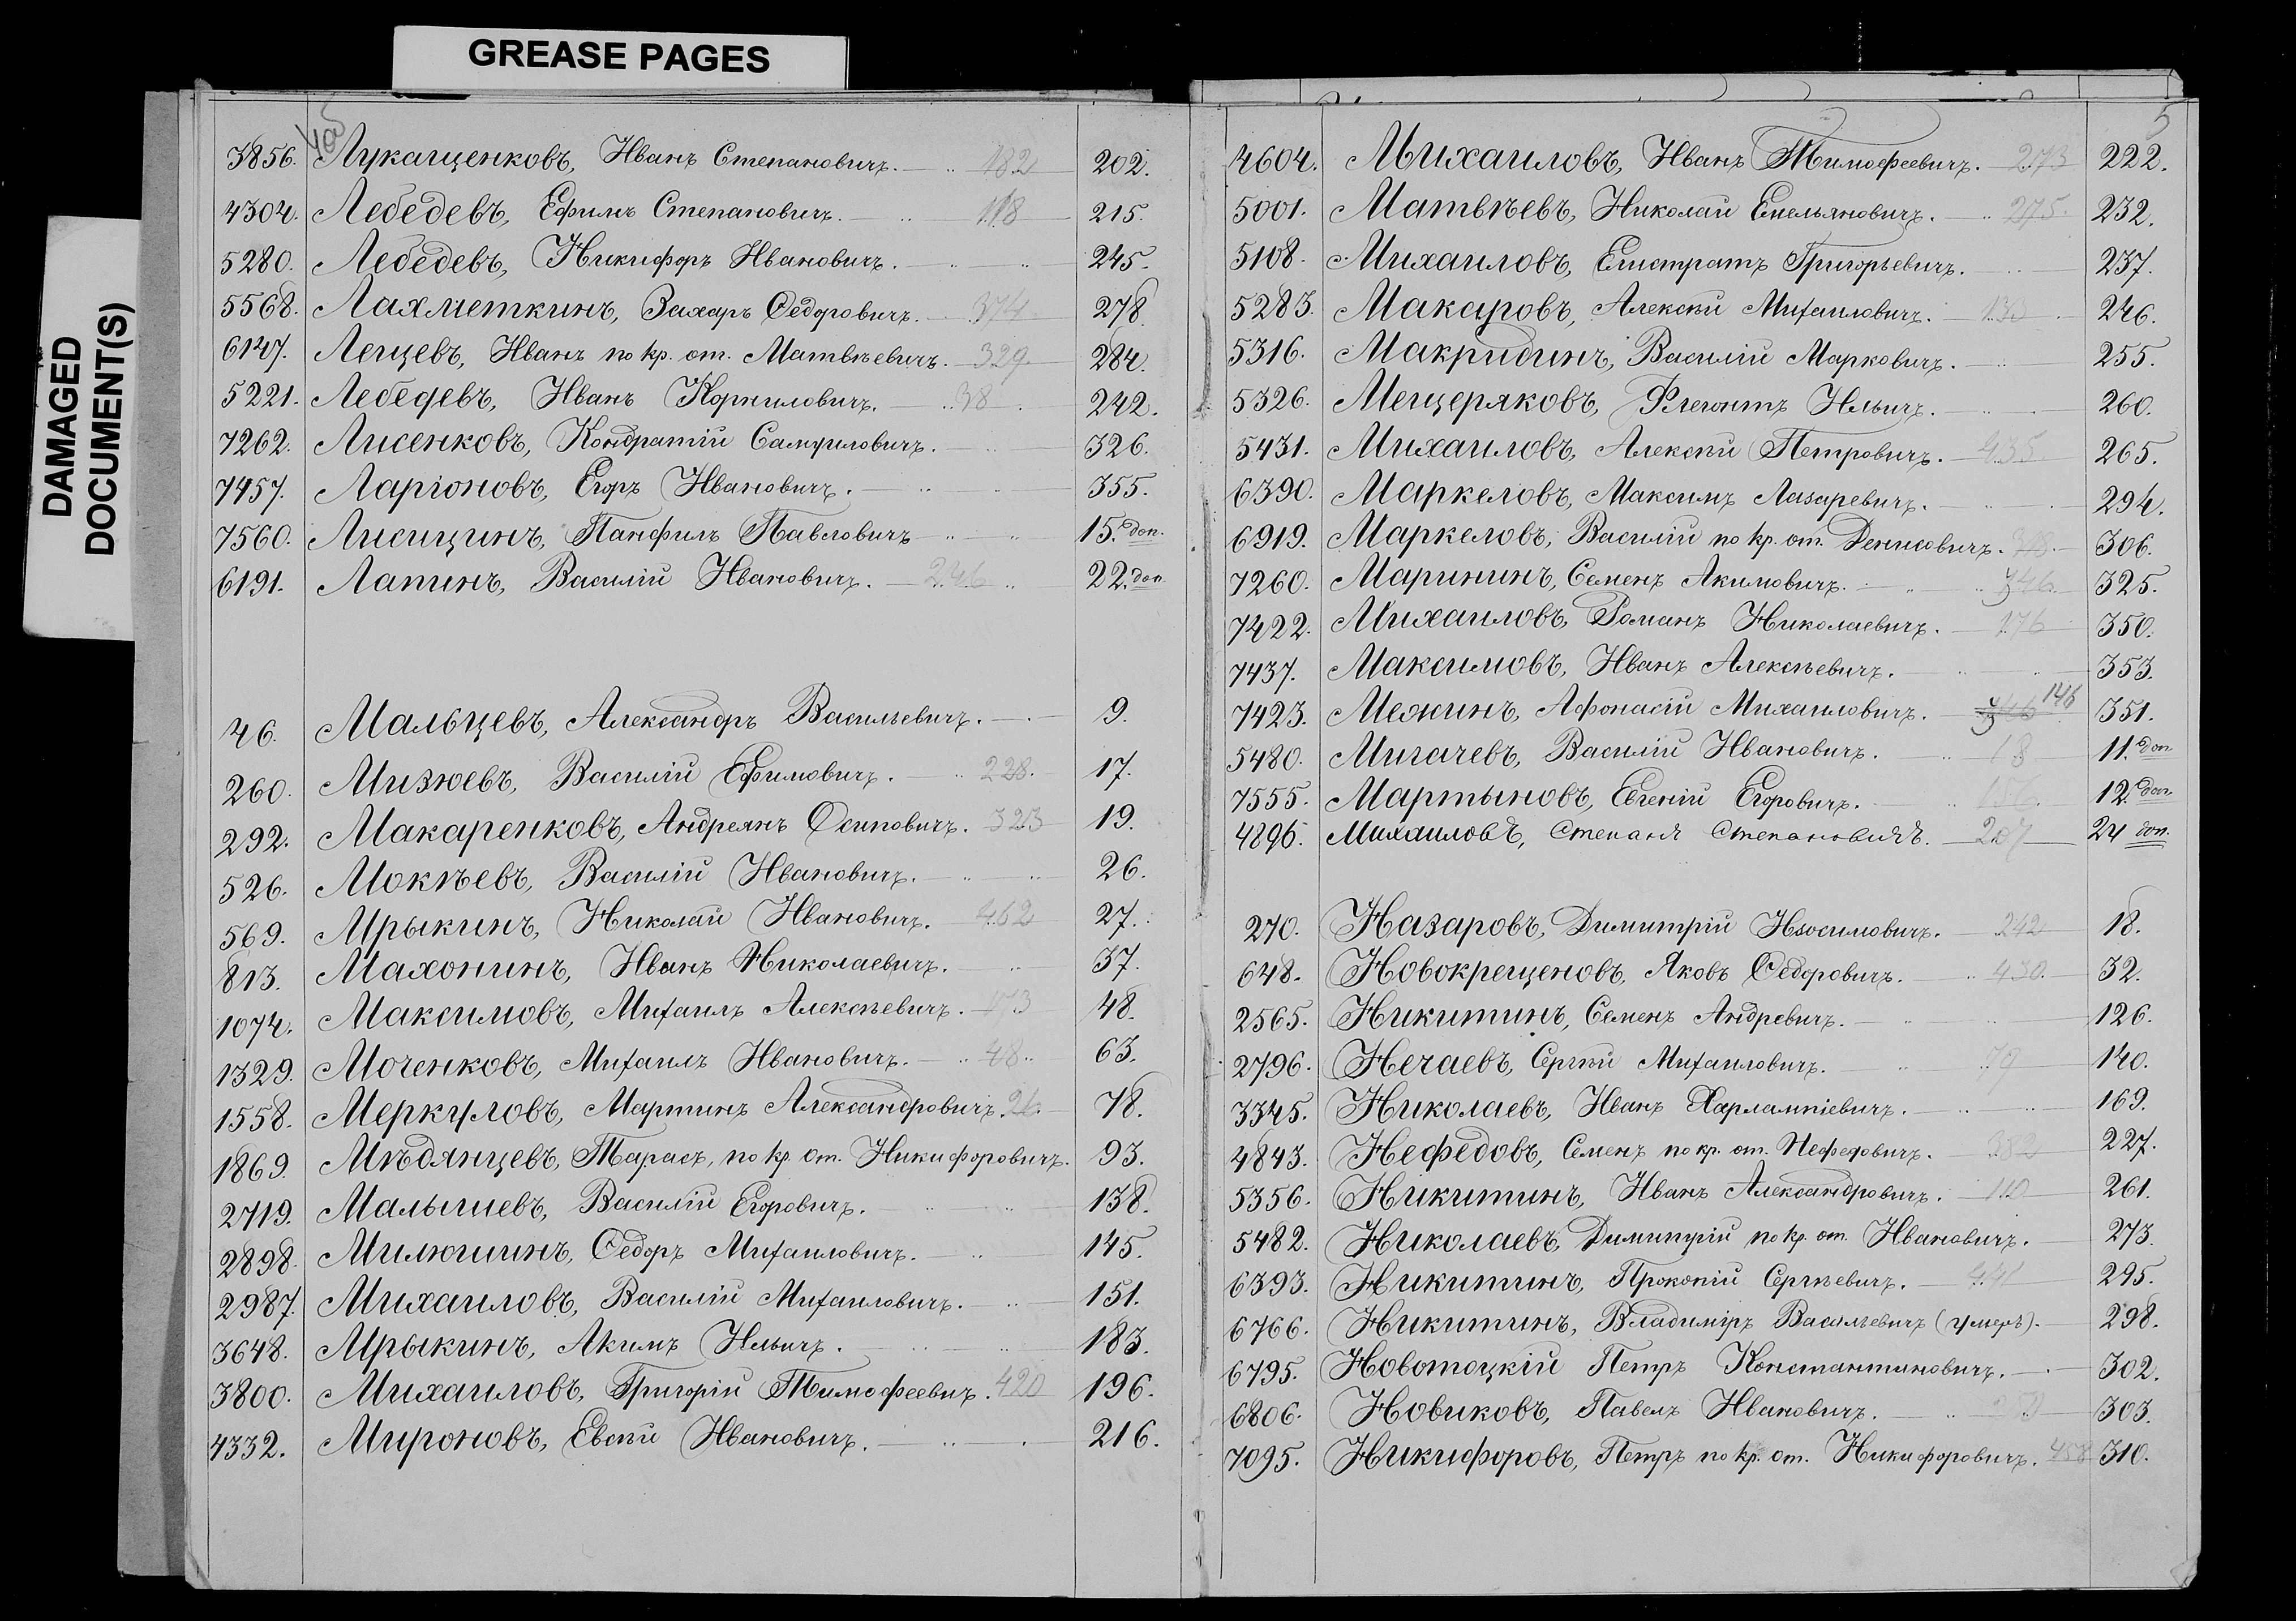 GREASE PAGES
DAMAGED
DOCUMENT(S)
4об
3856. Лукащенковъ, Иванъ Степановичъ. 182 202.
4304. Лебедевъ, Ефимъ Степановичъ. 118 215.
5280. Лебедевъ, Никифоръ Ивановичъ. 245.
5568. Лахметкинъ, Захаръ Ѳедоровичъ. 374 278.
6147. Лещевъ, Иванъ по кр. от. Матвѣевичъ. 329 284.
5221. Лебедевъ, Иванъ Корниловичъ. 38 242.
7262. Лисенковъ, Кондратій Самуиловичъ. 326.
7457. Ларіоновъ, Егоръ Ивановичъ. 355.
7560. Лисицинъ, Панфилъ Павловичъ 15. доп.
6191. Лапинъ, Василій Ивановичъ. 246 22. доп.
46. Мальцевъ, Александръ Васильевичъ. 9.
260. Мизюевъ, Василій Ефимовичъ. 228. 17.
292. Макаренковъ, Андреянъ Осиповичъ. 323 19.
526. Мокѣевъ, Василій Ивановичъ. 26.
569. Мрыкинъ, Николай Ивановичъ. 462 27.
813. Махонинъ, Иванъ Николаевичъ. 37.
1074. Максимовъ, Михаилъ Алексѣевичъ. 173 48.
1329. Моченковъ, Михаилъ Ивановичъ. 48 63.
1558. Меркуловъ, Мартинъ Александровичъ. 26. 78.
1869. Мѣдянцевъ, Тарасъ, по кр. от. Никифоровичъ. 93.
2719. Малышевъ, Василій Егоровичъ. 138.
2898. Милюшинъ, Ѳедоръ Михаиловичъ. 145.
2987. Михаиловъ, Василій Михаиловичъ. 151.
3648. Мрыкинъ, Акимъ Ильичъ. 183.
3800. Михаиловъ, Григорій Тимофеевичъ. 420 196.
4332. Мироновъ, Евсѣй Ивановичъ. 216.
5
4604. Михаиловъ, Иванъ Тимофеевичъ. 273 222.
5001. Матвѣевъ, Николай Емельяновичъ. 275. 232.
5108. Михаиловъ, Елистратъ Григорьевичъ. 237.
5283. Макаровъ, Алексѣй Михаиловичъ. 130 246.
5316. Макридинъ, Василій Марковичъ. 255.
5326. Мещеряковъ, Флегонтъ Ильичъ. 260.
5431. Михаиловъ, Алексѣй Петровичъ. 435 265.
6390. Маркеловъ, Максимъ Лазаревичъ. 294.
6919. Маркеловъ, Василій по кр. от. Денисовичъ. 306.
7260. Марининъ, Семенъ Акимовичъ. 346 325.
7422. Михаиловъ, Романъ Николаевичъ. 176 350.
7437. Максимовъ, Иванъ Алексѣевичъ. 353.
7423. Межинъ, Афонасій Михаиловичъ. 346 146 351.
5480. Мигачевъ, Василій Ивановичъ. 18 11. доп
7555. Мартыновъ, Евгеній Егоровичъ. 156. 12. доп.
4896. Михаиловъ, Степанъ Степановичъ. 207 24 доп.
270. Назаровъ, Димитрій Изосимовичъ. 242 18.
648. Новокрещеновъ, Яковъ Ѳедоровичъ. 430. 32.
2565. Никитинъ, Семенъ Андревичъ. 126.
2796. Нечаевъ, Сергѣй Михаиловичъ. 79 140.
3345. Николаевъ, Иванъ Харлампіевичъ. 169.
4843. Нефедовъ, Семенъ по кр. от. Нефедовичъ. 382 227.
5356. Никитинъ, Иванъ Александровичъ. 110 261.
5482. Николаевъ, Димитрій по кр. от. Ивановичъ. 273.
6393. Никитинъ, Прокопій Сергѣевичъ. 441 295.
6766. Никитинъ, Владиміръ Васильевичъ (умеръ). 298.
6795. Новотоцкій Петръ Константиновичъ. 302.
6806. Новиковъ, Павелъ Ивановичъ. 303.
7095. Никифоровъ, Петръ по кр. от. Никифоровичъ. 458 310.